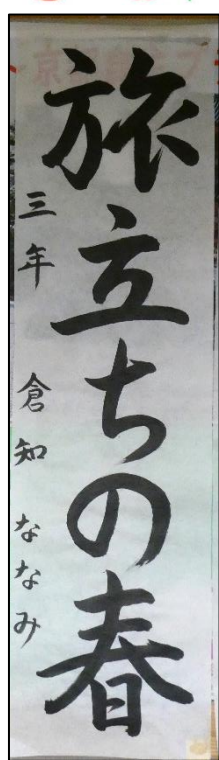 旅立ちの春
三年 倉知 ななみ